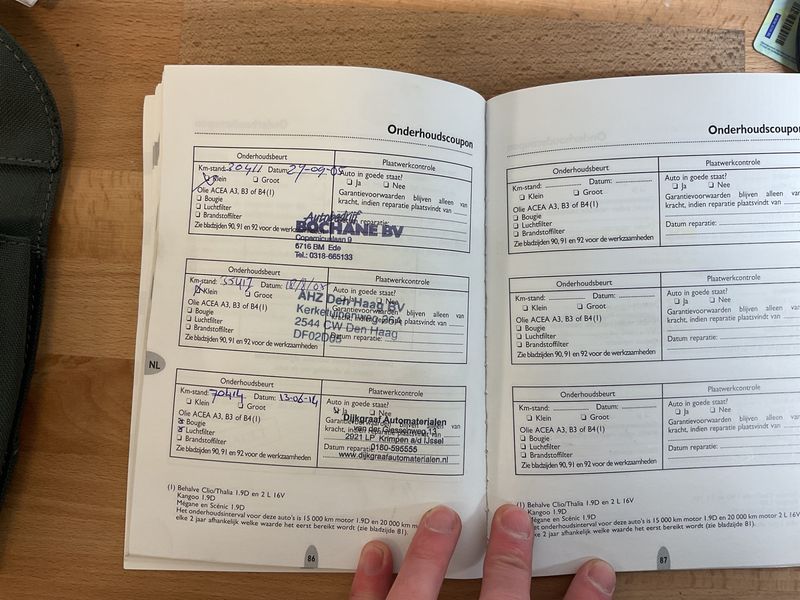 Onderhoudscoupon
Onderhoudsbeurt
Plaatwerkcontrole
Km-stand: 30411 Datum: 29-09-05
Klein Groot
Olie ACEA A3, B3 of B4(1)
Bougie
Luchtfilter
Brandstoffilter
Zie bladzijden 90, 91 en 92 voor de werkzaamheden
Auto in goede staat?
Ja Nee
Garantievoorwaarden blijven alleen van
kracht, indien reparatie plaatsvindt van
reparatie:
Autobedrijf
BOCHANE BV
Copernicuslaan 9
6716 BM Ede
Tel.: 0318-665133
Onderhoudsbeurt
Plaatwerkcontrole
Km-stand: 55417 Datum:
Klein Groot
Olie ACEA A3, B3 of B4(1)
Bougie
Luchtfilter
Brandstoffilter
Zie bladzijden 90, 91 en 92 voor de werkzaamheden
Auto in goede staat?
Ja Nee
blijven alleen van
kracht, indien reparatie plaatsvindt van
AHZ Den Haag BV
Kerketuinenweg 26A
2544 CW Den Haag
Onderhoudsbeurt
Plaatwerkcontrole
Km-stand: 70414 Datum: 13-06-14
Klein Groot
Olie ACEA A3, B3 of B4(1)
Bougie
Luchtfilter
Brandstoffilter
Zie bladzijden 90, 91 en 92 voor de werkzaamheden
Auto in goede staat?
Ja Nee
Datum reparatie:
Dijkgraaf Automaterialen
van der Giessenweg 13
2921 LP Krimpen a/d IJssel
0180-595555
www.dijkgraafautomaterialen.nl
(1) Behalve Clio/Thalia 1.9D en 2 L 16V
Kangoo 1.9D
Mégane en Scénic 1.9D
Het onderhoudsinterval voor deze auto's is 15 000 km motor 1.9D en 20 000 km
elke 2 jaar afhankelijk welke waarde het eerst bereikt wordt (zie bladzijde 81).
NL
86
Onderhoudscoupon
Onderhoudsbeurt
Plaatwerkcontrole
Km-stand: Datum:
Klein Groot
Olie ACEA A3, B3 of B4(1)
Bougie
Luchtfilter
Brandstoffilter
Zie bladzijden 90, 91 en 92 voor de werkzaamheden
Auto in goede staat?
Ja Nee
Garantievoorwaarden blijven alleen
kracht, indien reparatie plaatsvindt van
Datum reparatie:
Onderhoudsbeurt
Plaatwerkcontrole
Km-stand: Datum:
Klein Groot
Olie ACEA A3, B3 of B4(1)
Bougie
Luchtfilter
Brandstoffilter
Zie bladzijden 90, 91 en 92 voor de werkzaamheden
Auto in goede staat?
Ja Nee
Garantievoorwaarden blijven alleen
kracht, indien reparatie plaatsvindt van
Datum reparatie:
Onderhoudsbeurt
Plaatwerkcontrole
Km-stand: Datum:
Klein Groot
Olie ACEA A3, B3 of B4(1)
Bougie
Luchtfilter
Brandstoffilter
Zie bladzijden 90, 91 en 92 voor de werkzaamheden
Auto in goede staat?
Ja Nee
Garantievoorwaarden blijven alleen
kracht, indien reparatie plaatsvindt van
Datum reparatie:
(1) Behalve Clio/Thalia 1.9D en 2 L 16V
Kangoo 1.9D
Mégane en Scénic 1.9D
onderhoudsinterval voor deze auto's is 15 000 km motor 1.9D en 20 000 km motor 2 L
2 jaar afhankelijk welke waarde het eerst bereikt wordt (zie bladzijde 81).
87